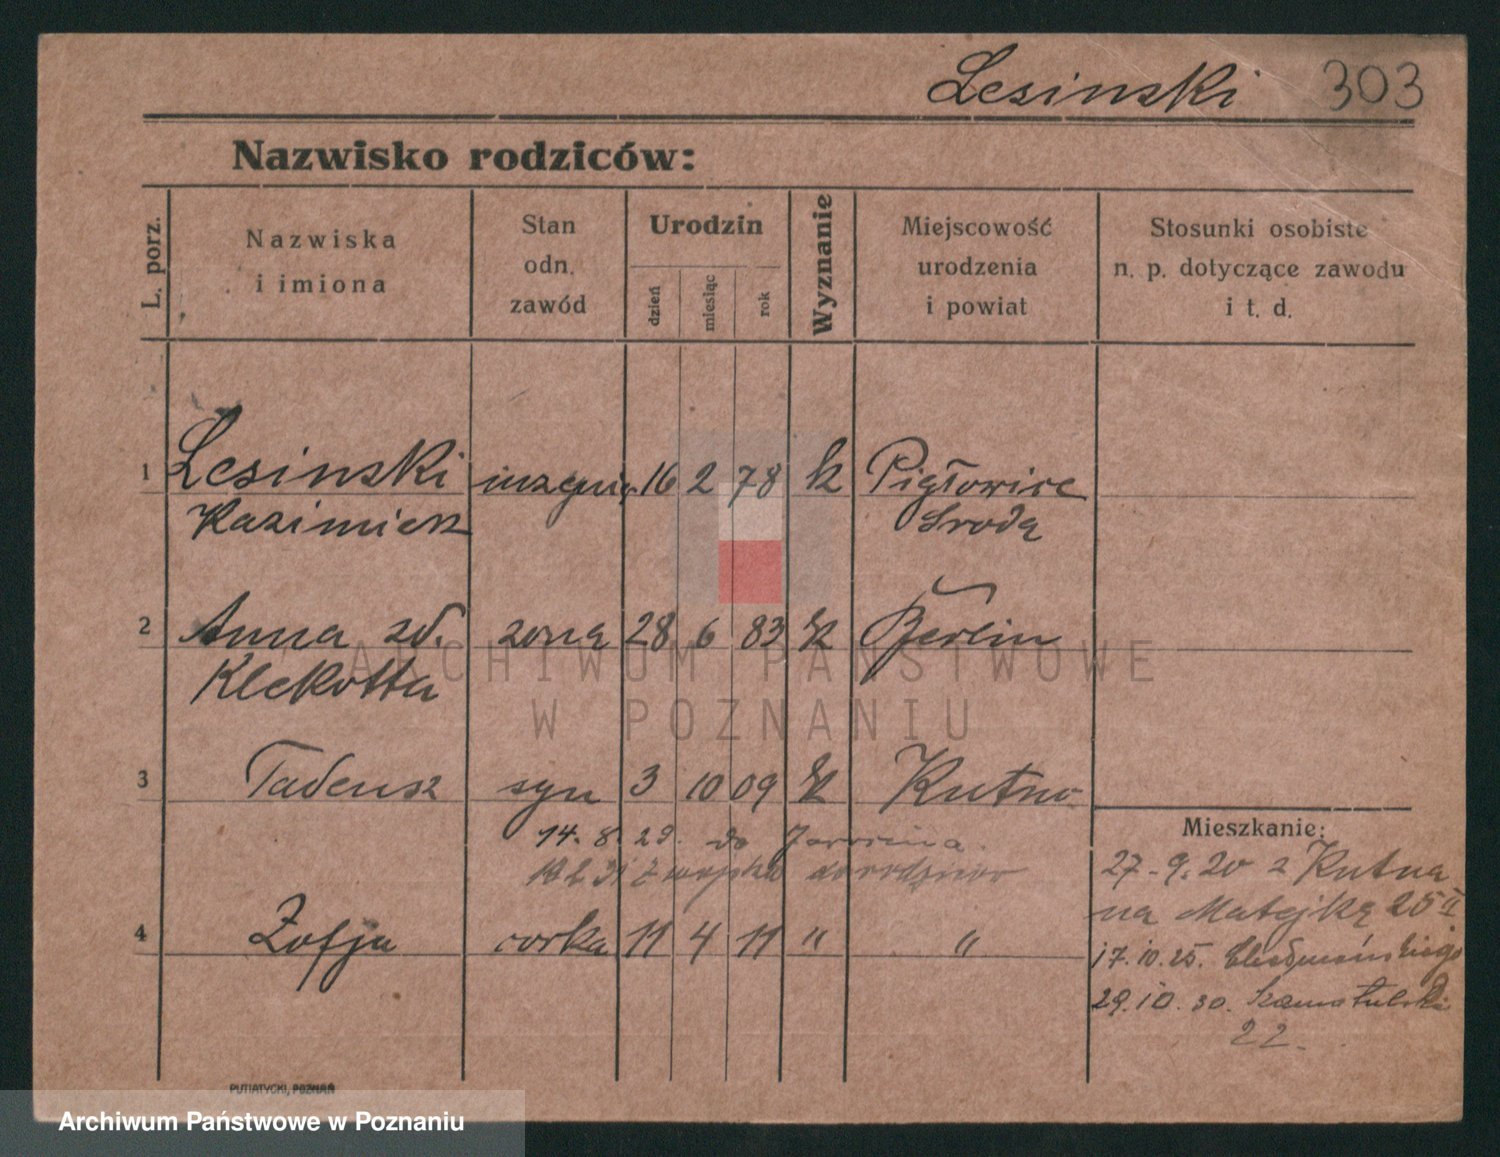 Lesinski 303
Nazwisko rodziców:
L. porz.
Nazwiska
i imiona
Stan
odn.
zawód
Urodzin
dzień
miesiąc
rok
Wyznanie
Miejscowość
urodzenia
i powiat
Stosunki osobiste
n. p. dotyczące zawodu
i t. d.
1 Lesinski 16 2 78 k Pigłowice
Kazimierz Sroda
2 Anna zd. zona 28 6 83 k Berlin
Klekotta
3 Tadeusz syn 3 10 09 k Kutno
14. 8. 29. do
z wojska
4 Zofja corka 11 4 11 " "
Mieszkanie:
27-9.20 z Kutna
na Matejkę 25 II
17.10.25.
29.10.30.
22.
ARCHIWUM PAŃSTWOWE
W POZNANIU
PUTIATYCKI, POZNAŃ
Archiwum Państwowe w Poznaniu